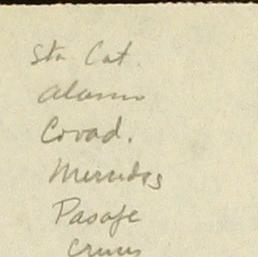 Sta Cat.
Alamo
Covad.
Mercedes
Pasaje
Cruces